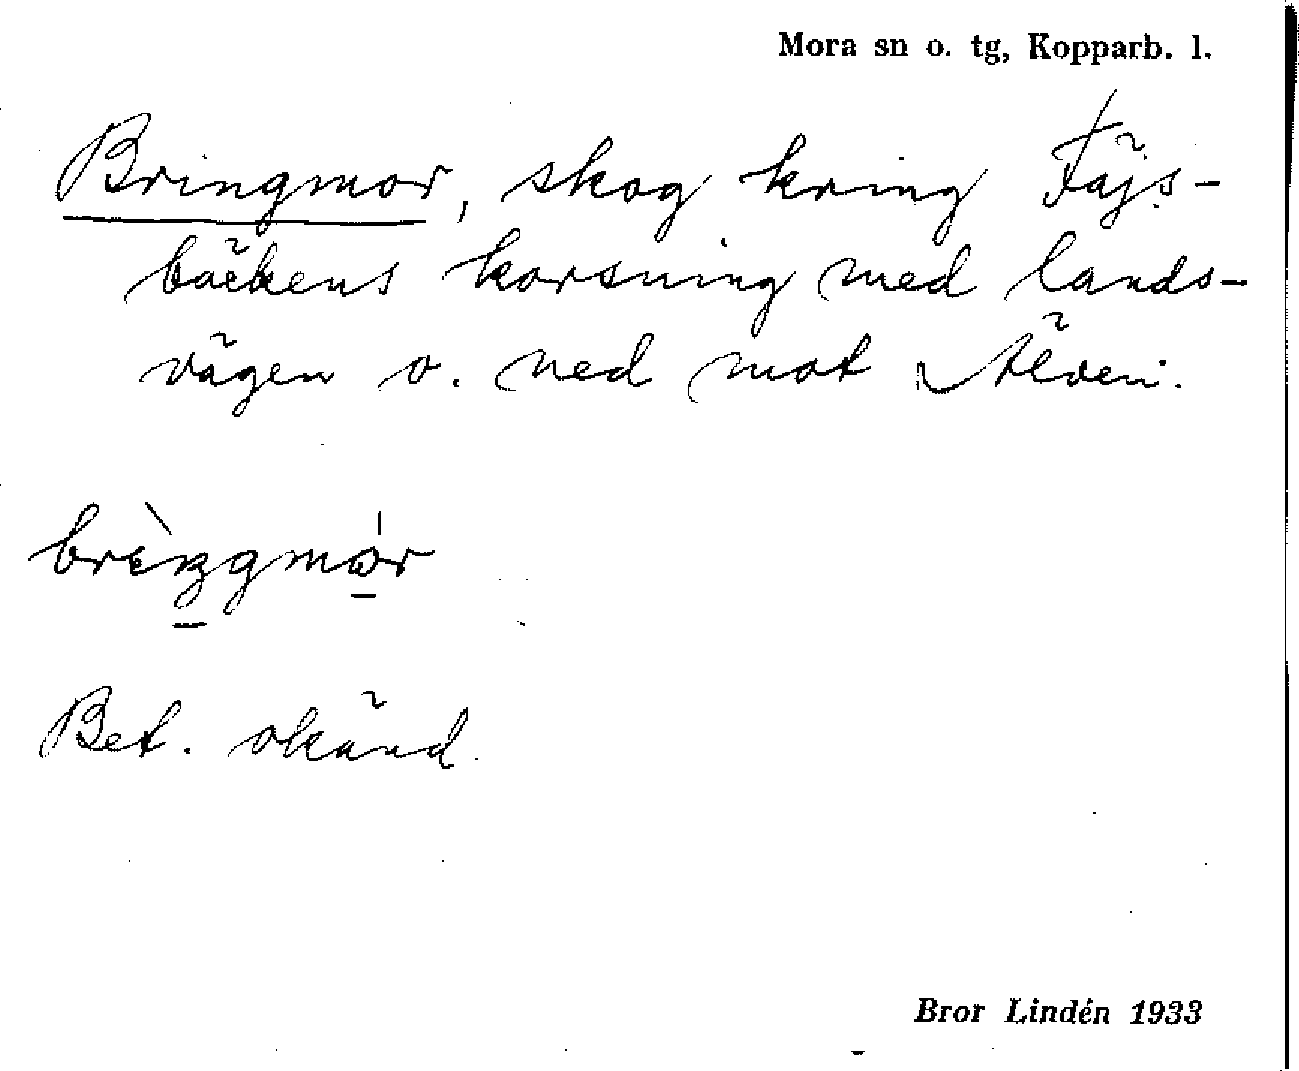 Mora sn o. tg, Kopparb. l.
Bringmor, skog kring Fäjs-
bäckens korsning med lands-
vägen o. ned mot Älven.
Bet. okänd.
Bror Lindén 1933